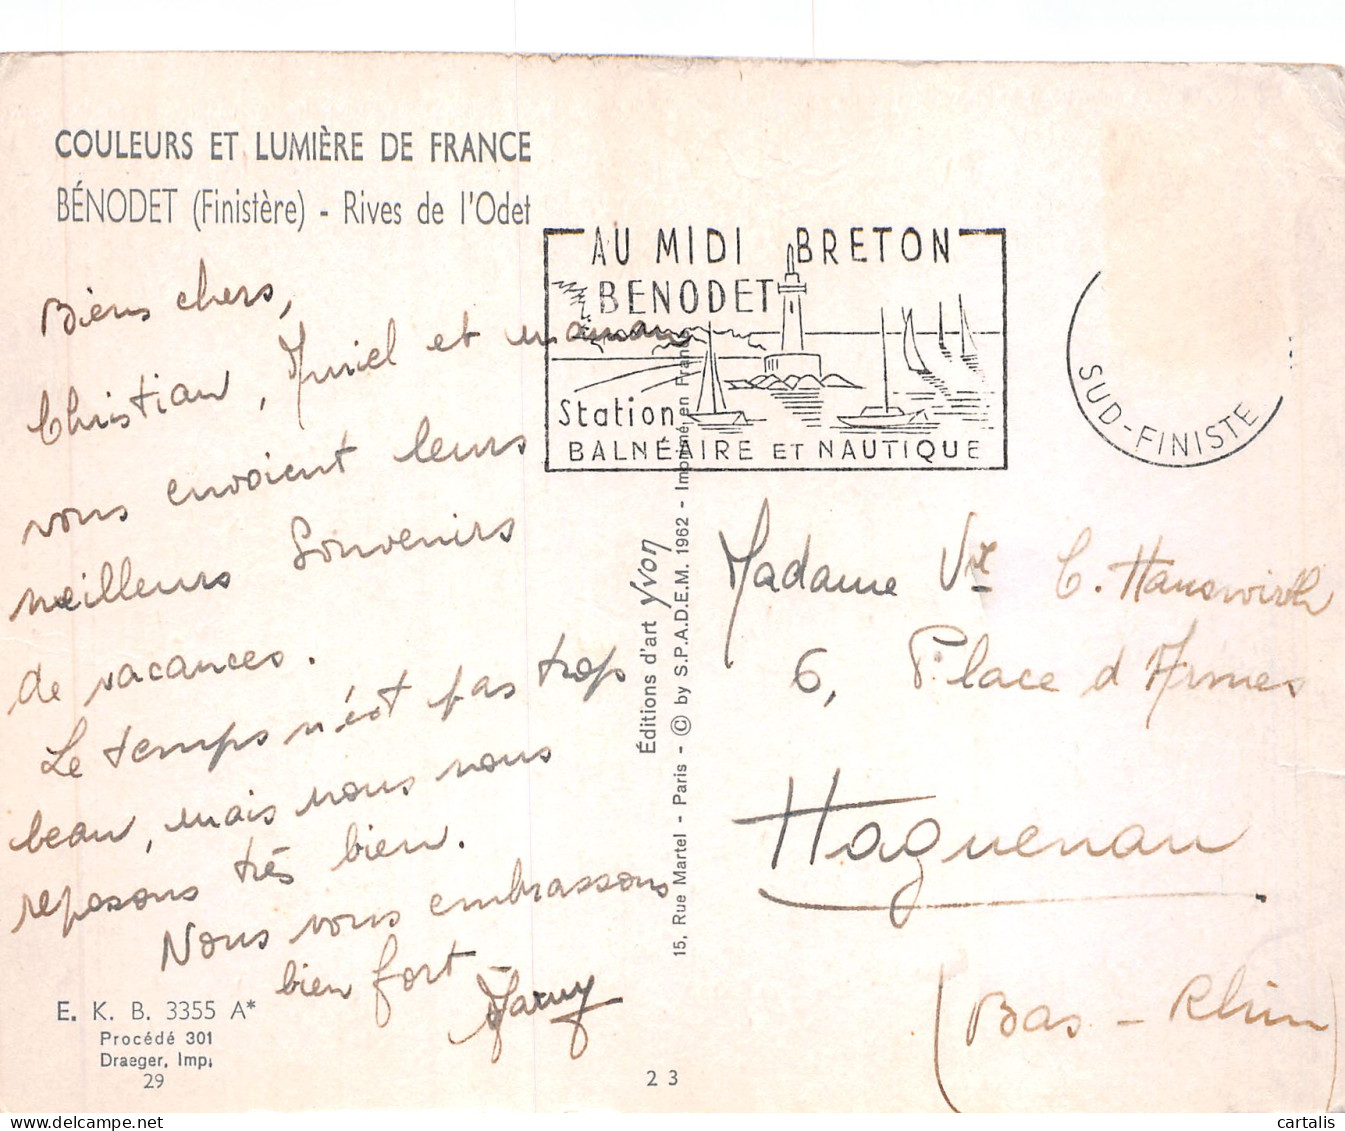 COULEURS ET LUMIÈRE DE FRANCE
BÉNODET (Finistère) - Rives de l'Odet
Biens chers,
Christian, Muriel et maman
vous envoient leurs
meilleurs Souvenirs
de vacances.
Le temps n'est pas trop
beau, mais nous nous
reposons très bien.
Nous vous embrassons
bien fort
E. K. B. 3355 A*
Procédé 301
Draeger, Imp.
29
Éditions d'art Yvon
15, Rue Martel - Paris - © by S.P.A.D.E.M. 1962 - Imprimé en France
23
AU MIDI BRETON
BENODET
Station
BALNÉAIRE ET NAUTIQUE
SUD-FINISTE
Madame Vve C. Hauswirth
6, Place d'Armes
Haguenau
(Bas-Rhin)
cartalis